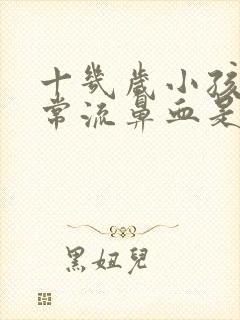 十幾歲小孩
常流鼻血是
黑妞兒